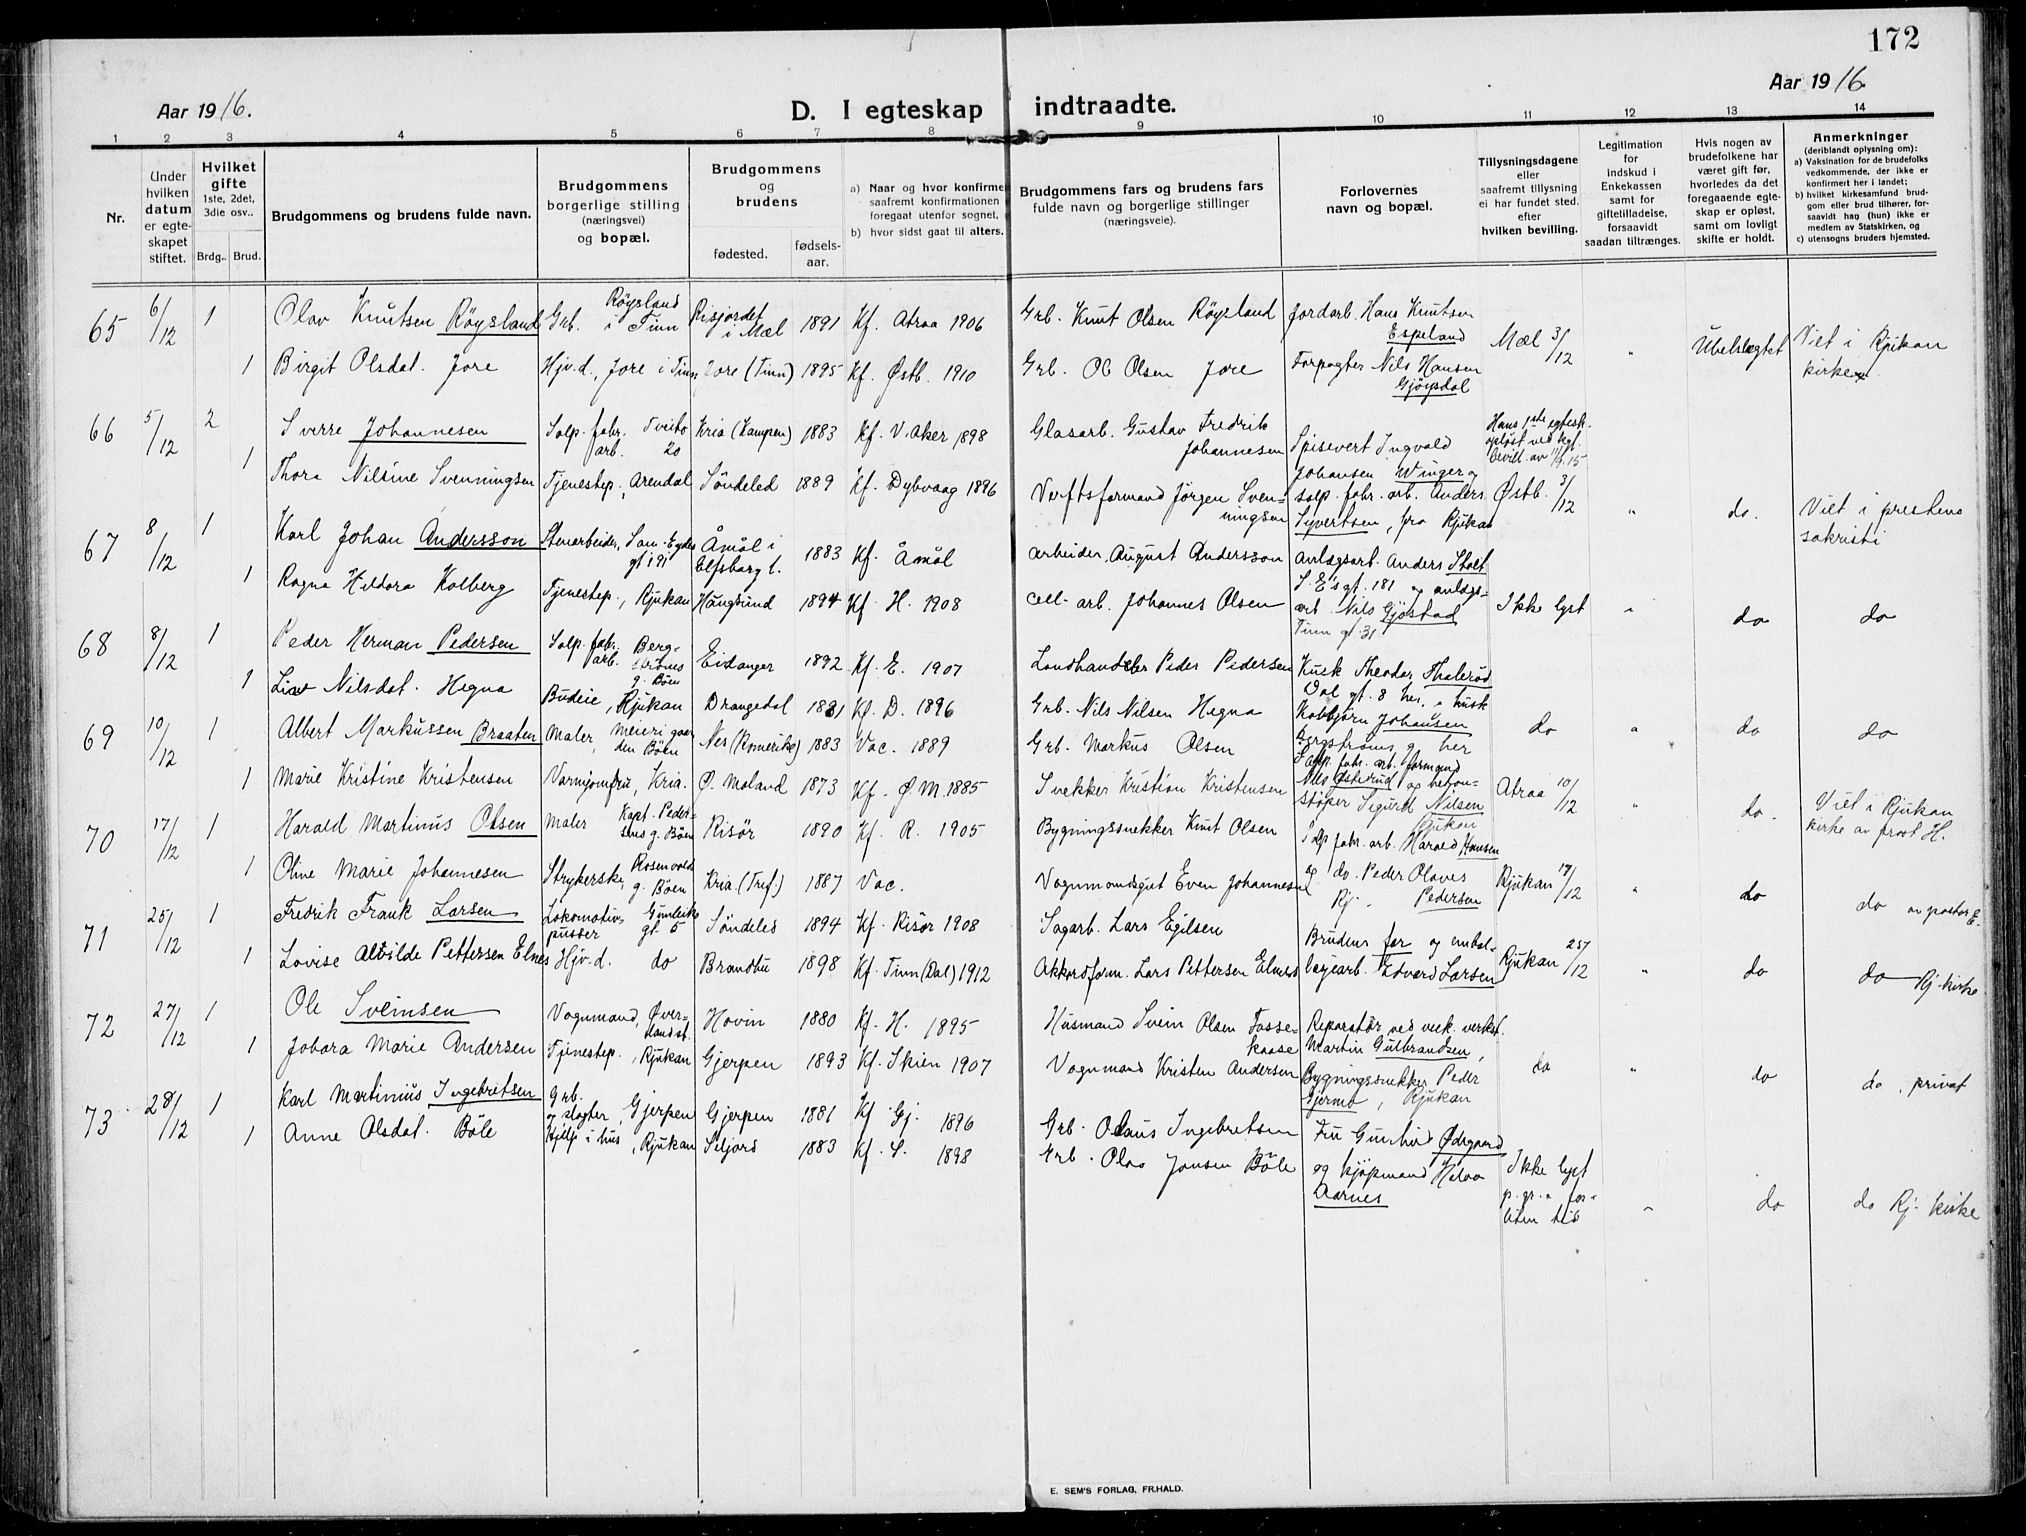 172
Aar 1916.
D. I egteskap indtraadte.
Aar 1916
1 2 3 4 5 6 7 8 9 10 11 12 13 14
Nr.
Under hvilken datum er egteskapet stiftet.
Hvilket gifte 1ste, 2det, 3die osv..
Brdg.. Brud.
Brudgommens og brudens fulde navn.
Brudgommens borgerlige stilling (næringsvei) og bopæl.
Brudgommens og brudens
fødested.
fødsels-aar.
a) Naar og hvor konfirme
saafremt konfirmationen
foregaat utenfor sognet,
b) hvor sidst gaat til alters.
Brudgommens fars og brudens fars
fulde navn og borgerlige stillinger
(næringsveie).
Forlovernes
navn og bopæl.
Tillysningsdagene
eller
saafremt tillysning
ei har fundet sted.
efter
hvilken bevilling.
Legitimation
for
indskud i
Enkekassen
samt for
giftetilladelse,
forsaavidt
saadan tiltrænges.
Hvis nogen av
brudefolkene har
været gift før,
hvorledes da det
foregaaende egte-
skap er opløst,
samt om lovligt
skifte er holdt.
Anmerkninger
(deriblandt oplysning om):
a) Vaksination for de brudefolks
vedkommende, der ikke er
konfirmert her i landet;
b) hvilket kirkesamfund brud-
gom eller brud tilhører, for-
saavidt han (hun) ikke er
medlem av Statskirken, og
c) utensogns bruders hjemsted.
65 6/12 1 Olav Knutsen Røysland Grb. Røysland i Tinn Risjordet i Mæl 1891 Kf. Atraa 1906 Grb. Knut Olsen Røysland Jordarb. Hans Knutsen Espeland
1 Birgit Olsdat. Jore Hjv.d., Jore i Tinn Jore (Tinn) 1895 Kf. Østb. 1910 Grb. Ol Olsen Jore Forpagter Nils Hansen Gjøysdal Mæl 3/12 " Ubeslegtet Viet i Rjukan kirke
66 5/12 2 Sverre Johannesen Salp. fabr. arb. Tveito 20 Kria (Kampen) 1883 Kf. V. Aker 1898 Glasarb. Gustav Fredrik Johannesen Spisevert Ingvald Hans 1ste egtesk. opløst ved kgl. bevill. av
1 Thora Nilsine Svenningsen Tjenestep., Arendal Søndeled 1889 Kf. Dybvaag 1896 Verftsformand Jørgen Svenningsen Johansen Winger og salp. fabr. arb. Anders Syvertsen, fra Rjukan Østb. 3/12 " do. Viet i prestens sakristi
67 8/12 1 Karl Johan Andersson Stenarbeider, Sam. Eydes gt 191 Åmål i Elfsborg l. 1883 Kf. Åmål Arbeider August Andersson Anlægsarb. Anders Stolt
1 Ragna Heldora Kolberg Tjenestep., Rjukan Haugsund 1894 Kf. H. 1908 Cell. arb. Johannes Olsen S. E's gt. 181 og anlægs- arb. Nils Gjøstad Tinn gt. 31 Ikke lyst " do do
68 8/12 1 Peder Herman Pedersen Salp. fabr. arb. Berg- strøms g. Bøen Eidanger 1892 Kf. E. 1907 Landhandler Peder Pedersen Kusk Theodor Thalerød
1 Liav Nilsdat. Hegna Budeie, Rjukan Drangedal 1881 Kf. D. 1896 Grb. Nils Nilsen Hegna Dal gt. 8 her, " kusk Kolbjørn Johansen Bergstrøms g. her do " do do
69 10/12 1 Albert Markussen Braaten Maler, Meieri gaar- den Bøen Nes (Romerike) 1883 Vac. 1889 Grb. Markus Olsen Salp. fabr. arb. formand
1 Marie Kristine Kristensen Varmjomfru, Kria. Ø. Moland 1873 Kf. Ø M. 1885 Snekker Kristian Kristensen Nils Østerud og beton- støper Sigurd Nilsen Rjukan Atraa 10/12 " do. Viet i Rjukan kirke av prost H.
70 17/12 1 Harald Martinus Olsen Maler Kapt. Peder- sens g. Bøen Risør 1890 Kf. R. 1905 Bygningssnekker Knut Olsen Salp fabr. arb. Harald Hansen
1 Oline Marie Johannesen Strykerske, Rosenvolds g. Bøen Kria. (Tref.) 1887 Vac. Vognmandsgut Even Johannesen og do. Peder Olaves Pedersen Rj. Rjukan 17/12 " do do av pastor E.
71 25/12 1 Fredrik Frank Larsen Lokomotiv pusser Gunleiks gt. 5 Søndeled 1894 Kf. Risør 1908 Sagarb. Lars Egilsen Brudens far og embal-
1 Lovise Alvilde Pettersen Elnes Hjv.d. do Brandbu 1898 Kf. Tinn (Dal) 1912 Akkordform. Lars Pettersen Elnes lagearb. Edvard Larsen Rjukan 25/12 " do do Rj. kirke
72 27/12 1 Ole Sveinsen Vognmand, Øver- landst. Hovin 1880 Kf. H. 1895 Husmand Svein Olsen Fosse- kaase Reparatør ved mek. verkst. Martin Gulbrandsen,
1 Johara Marie Andersen Tjenestep., Rjukan Gjerpen 1893 Kf. Skien 1907 Vognmand Kristen Andersen Bygningssnekker Peder Gjermo, Rjukan do " do do, privat
73 28/12 1 Karl Martinius Ingebretsen Grb. slagter, Gjerpen Gjerpen 1881 Kf. Gj. 1896 Grb. Olaus Ingebretsen Fru Gunhild Ødegaard
1 Anne Olsdat. Bøle Hjelp i hus, Rjukan Seljord 1883 Kf. S. 1898 Grb. Olav Jonsen Bøle og kjøpmand Aarnes Ikke lyst p. gr. a for- liten tid " do do Rj. kirke
E. SEM'S FORLAG, FR.HALD.